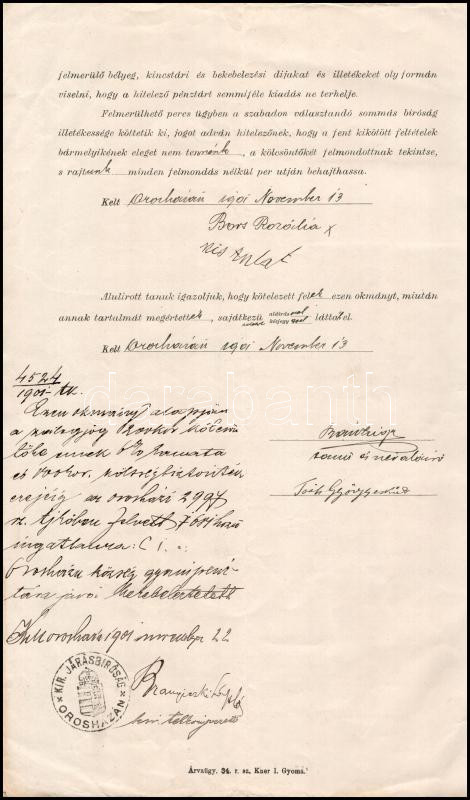 felmerülő bélyeg, kincstári és bekebelezési dijakat és illetékeket oly formán
viselni, hogy a hitelező pénztárt semmiféle kiadás ne terhelje.
Felmerülhető peres ügyben a szabadon választandó sommás biróság
illetékessége köttetik ki, jogot adván hitelezőnek, hogy a fent kikötött feltételek
bármelyikének eleget nem tennénk, a kölcsöntőkét felmondottnak tekintse,
s rajtunk minden felmondás nélkül per utján behajthassa.
Kelt Orosházán 1901 November 13
Bors Rozália x
Kis Antal
Alulirott tanuk igazoljuk, hogy kötelezett felek ezen okmányt, miután
annak tartalmát megértették, sajátkezü aláirással
kézjegy láttatel.
Kelt Orosházán 1901 November 13
4524
1901 tk.
Ezen okmány alapján
a zálogjog
erejéig az orosházi 2997
sz. tjkvben felvett
ingatlanra: C 1.
Orosháza község gyámpénz-
tára javára bekebeleztetett
tanu és névaláiró
Tóth György
1901 november 22
KIR. JÁRÁSBIRÓSÁG
OROSHÁZÁN
kir. telekkönyvvezető
darabanth
Árvaügy. 34. r. sz. Kner I. Gyoma.